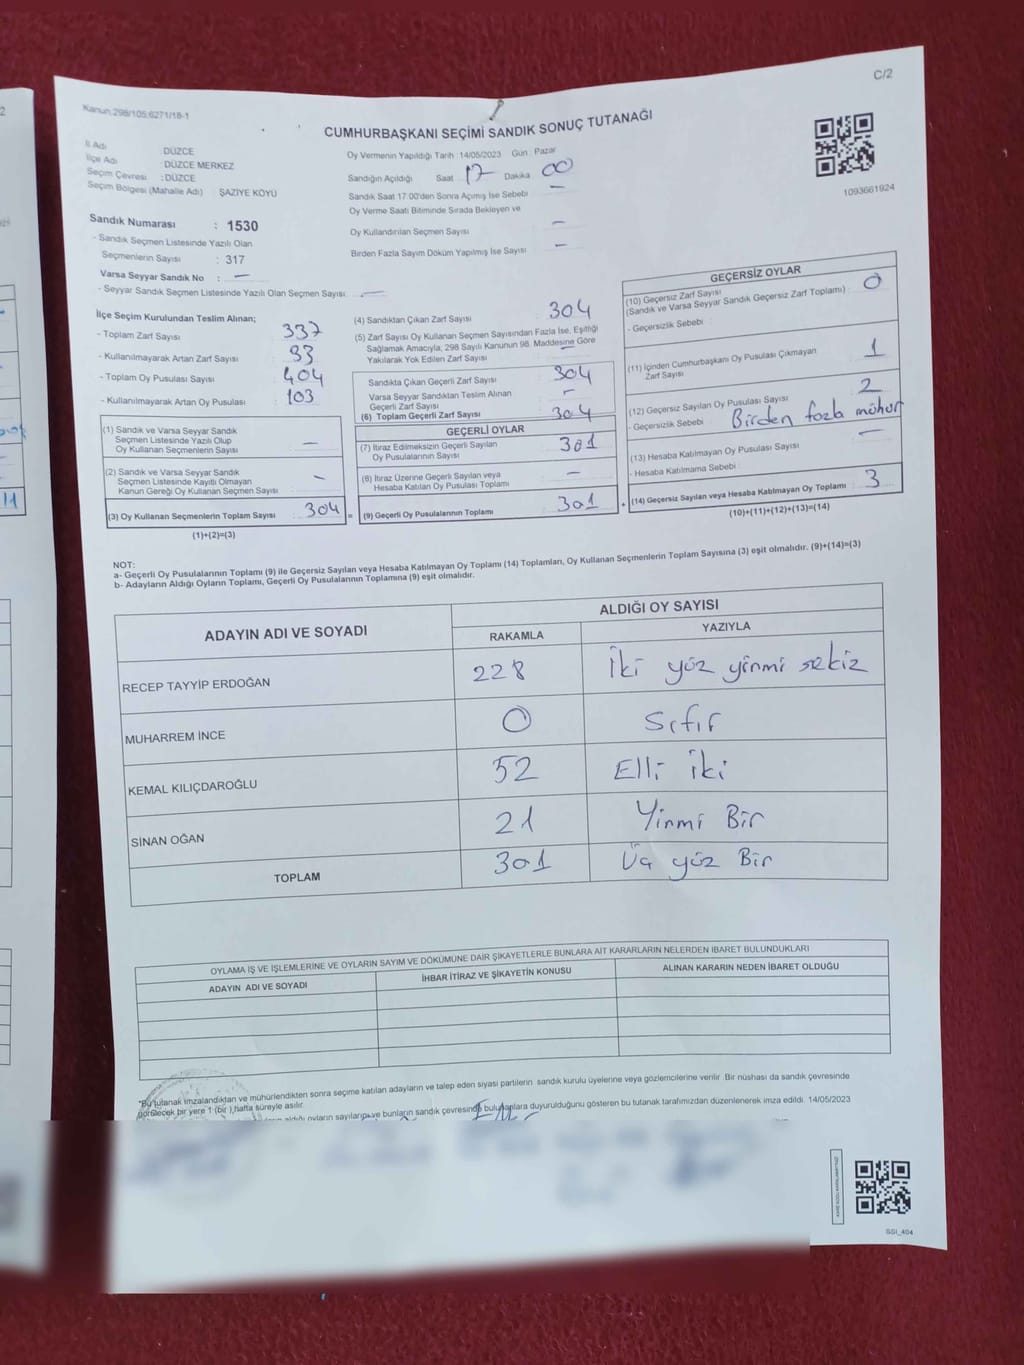 C/2
Kanun.298/105;6271/18-1
CUMHURBAŞKANI SEÇİMİ SANDIK SONUÇ TUTANAĞI
İl Adı : DÜZCE
İlçe Adı : DÜZCE MERKEZ
Seçim Çevresi : DÜZCE
Seçim Bölgesi (Mahalle Adı) : ŞAZİYE KÖYÜ
Oy Vermenin Yapıldığı Tarih :14/05/2023 Gün : Pazar
Sandığın Açıldığı Saat : 17 Dakika : 00
Sandık Saat 17:00'den Sonra Açmış İse Sebebi : —
Oy Verme Saati Bitiminde Sırada Bekleyen ve
Oy Kullandırılan Seçmen Sayısı : —
Birden Fazla Sayım Döküm Yapılmış İse Sayısı : —
1093661924
Sandık Numarası : 1530
- Sandık Seçmen Listesinde Yazılı Olan
Seçmenlerin Sayısı : 317
Varsa Seyyar Sandık No : —
- Seyyar Sandık Seçmen Listesinde Yazılı Olan Seçmen Sayısı: —
İlçe Seçim Kurulundan Teslim Alınan;
- Toplam Zarf Sayısı : 337
- Kullanılmayarak Artan Zarf Sayısı : 33
- Toplam Oy Pusulası Sayısı : 404
- Kullanılmayarak Artan Oy Pusulası : 103
(1) Sandık ve Varsa Seyyar Sandık
Seçmen Listesinde Yazılı Olup
Oy Kullanan Seçmenlerin Sayısı : —
(2) Sandık ve Varsa Seyyar Sandık
Seçmen Listesinde Kayıtlı Olmayan
Kanun Gereği Oy Kullanan Seçmen Sayısı : —
(3) Oy Kullanan Seçmenlerin Toplam Sayısı : 304
(1)+(2)=(3)
=
(4) Sandıktan Çıkan Zarf Sayısı : 304
(5) Zarf Sayısı Oy Kullanan Seçmen Sayısından Fazla İse, Eşitliği
Sağlamak Amacıyla, 298 Sayılı Kanunun 98. Maddesine Göre
Yakılarak Yok Edilen Zarf Sayısı : —
Sandıkta Çıkan Geçerli Zarf Sayısı : 304
Varsa Seyyar Sandıktan Teslim Alınan
Geçerli Zarf Sayısı : —
(6) Toplam Geçerli Zarf Sayısı : 304
GEÇERLİ OYLAR
(7) İtiraz Edilmeksizin Geçerli Sayılan
Oy Pusulalarının Sayısı : 301
(8) İtiraz Üzerine Geçerli Sayılan veya
Hesaba Katılan Oy Pusulası Toplamı : —
(9) Geçerli Oy Pusulalarının Toplamı : 301
+
GEÇERSİZ OYLAR
(10) Geçersiz Zarf Sayısı
(Sandık ve Varsa Seyyar Sandık Geçersiz Zarf Toplamı) : 0
- Geçersizlik Sebebi :
(11) İçinden Cumhurbaşkanı Oy Pusulası Çıkmayan
Zarf Sayısı : 1
(12) Geçersiz Sayılan Oy Pusulası Sayısı : 2
- Geçersizlik Sebebi : Birden fazla mühür
(13) Hesaba Katılmayan Oy Pusulası Sayısı : —
- Hesaba Katılmama Sebebi :
(14) Geçersiz Sayılan veya Hesaba Katılmayan Oy Toplamı : 3
(10)+(11)+(12)+(13)=(14)
NOT:
a- Geçerli Oy Pusulalarının Toplamı (9) ile Geçersiz Sayılan veya Hesaba Katılmayan Oy Toplamı (14) Toplamları, Oy Kullanan Seçmenlerin Toplam Sayısına (3) eşit olmalıdır. (9)+(14)=(3)
b- Adayların Aldığı Oyların Toplamı, Geçerli Oy Pusulalarının Toplamına (9) eşit olmalıdır.
ADAYIN ADI VE SOYADI ALDIĞI OY SAYISI
RAKAMLA YAZIYLA
RECEP TAYYİP ERDOĞAN 228 İki yüz yirmi sekiz
MUHARREM İNCE 0 Sıfır
KEMAL KILIÇDAROĞLU 52 Elli iki
SİNAN OĞAN 21 Yirmi Bir
TOPLAM 301 Üç yüz Bir
OYLAMA İŞ VE İŞLEMLERİNE VE OYLARIN SAYIM VE DÖKÜMÜNE DAİR ŞİKAYETLERLE BUNLARA AİT KARARLARIN NELERDEN İBARET BULUNDUKLARI
ADAYIN ADI VE SOYADI İHBAR İTİRAZ VE ŞİKAYETİN KONUSU ALINAN KARARIN NEDEN İBARET OLDUĞU
*Bu tutanak imzalandıktan ve mühürlendikten sonra seçime katılan adayların ve talep eden siyasi partilerin sandık kurulu üyelerine veya gözlemcilerine verilir. Bir nüshası da sandık çevresinde
görülecek bir yere 1 (bir) hafta süreyle asılır.
aldığı oyların sayıları ve bunların sandık çevresinde bulunanlara duyurulduğunu gösteren bu tutanak tarafımızdan düzenlenerek imza edildi. 14/05/2023
SSI_404